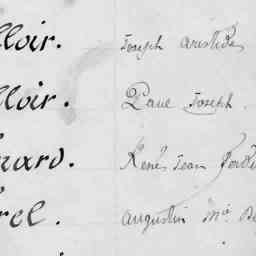 lloir. Joseph Aristide
lloir. Paul Joseph
nard. René Jean
rel. Augustin Mie